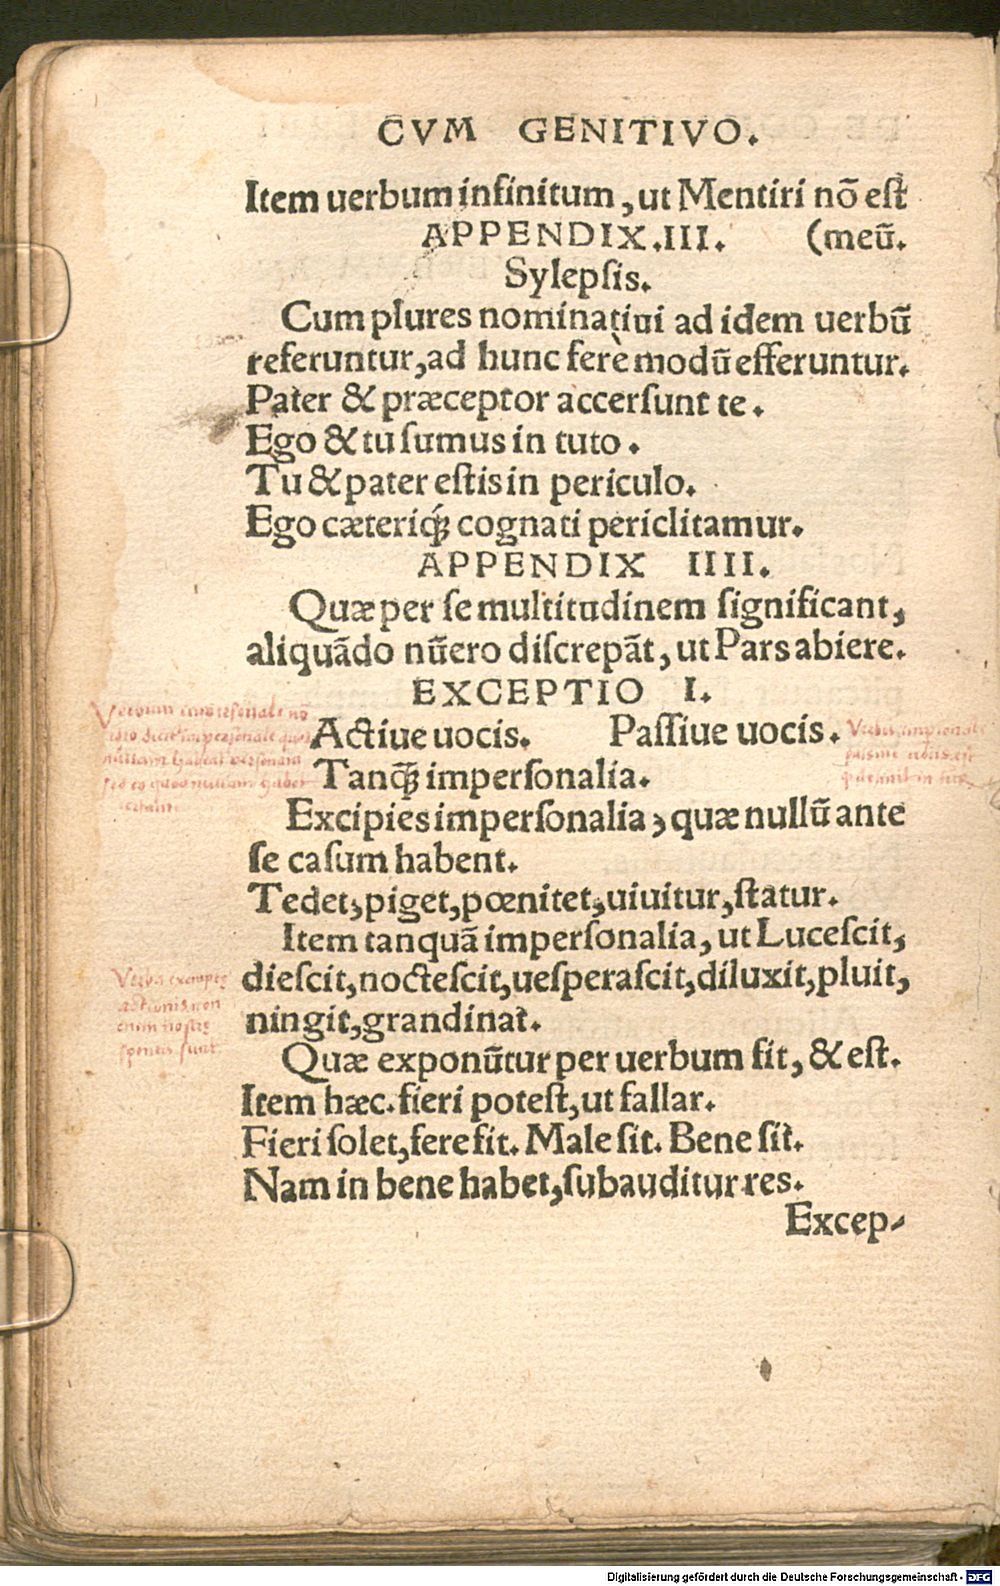 CVM GENITIVO.
Item uerbum infinitum, ut Mentiri nō est
APPENDIX. III. (meū.
Sylepsis.
Cum plures nominatiui ad idem uerbū
referuntur, ad hunc ferè modū efferuntur.
Pater & præceptor accersunt te.
Ego & tu sumus in tuto.
Tu & pater estis in periculo.
Ego cæteriq́ꝫ cognati periclitamur.
APPENDIX IIII.
Quæ per se multitudinem significant,
aliquādo nūero discrepāt, ut Pars abiere.
EXCEPTIO I.
Actiue uocis. Passiue uocis.
Tanq̃ꝫ impersonalia.
Excipies impersonalia, quæ nullū ante
se casum habent.
Tedet, piget, pœnitet, uiuitur, statur.
Item tanquā impersonalia, ut Lucescit,
diescit, noctescit, uesperascit, diluxit, pluit,
ningit, grandinat.
Quæ exponūtur per uerbum fit, & est.
Item hæc. fieri potest, ut fallar.
Fieri solet, fere fit. Male sit. Bene sit.
Nam in bene habet, subauditur res.
Excep-
Verbum impersonale nō
nullam habeat personam
Verba exempte
actionis non
enim nostre
sponte sunt
Digitalisierung gefördert durch die Deutsche Forschungsgemeinschaft - DFG